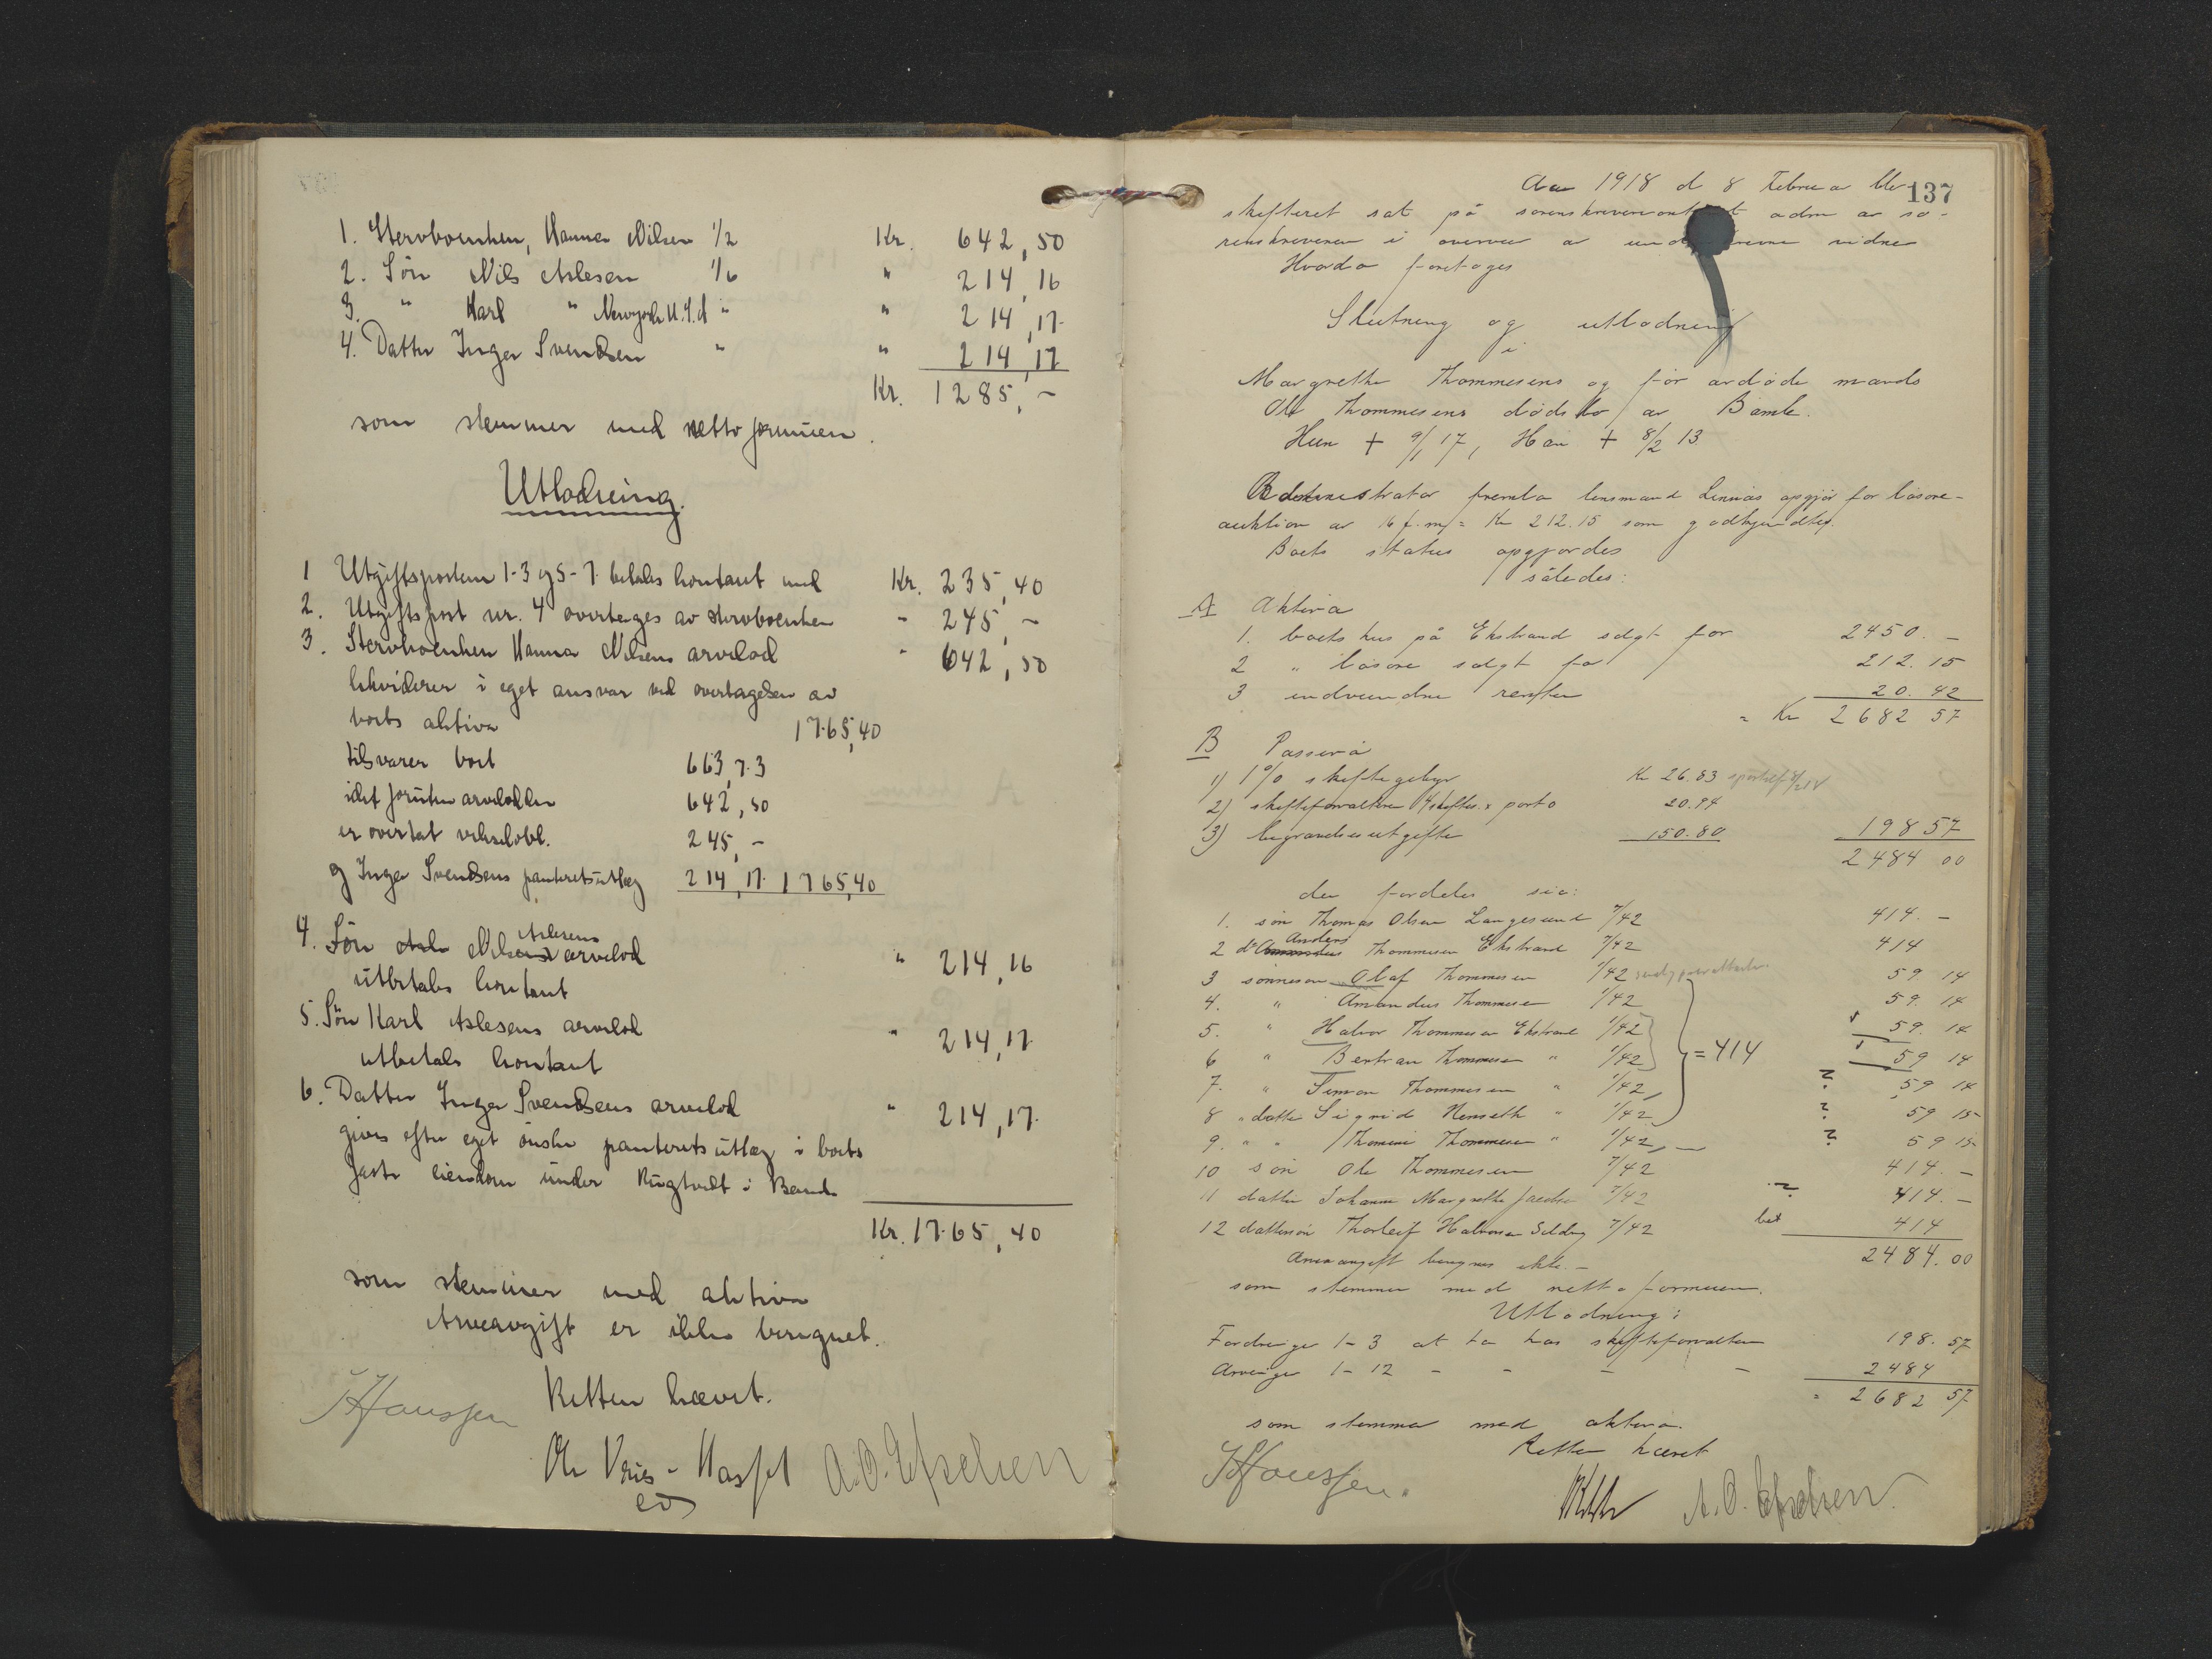 1. Stervboenken, Hanna Nilsen 1/2 Kr. 642,50
2. Sön Nils Aslesen 1/6 " 214,16
3. " Karl " Newyork U.S.A " " 214,17
4. Datter Inger Svendsen " " 214,17
Kr. 1285,-
som stemmer med nettoformuen.
Utlodning.
1 Utgiftspostene 1-3 og 5-7 betales kontant med Kr. 235,40
2. Utgiftspost nr. 4 overtages av stervboenken - 245,-
3. Stervboenken Hanna Nilsens arvelod - 642,50
likviderer i eget ansvar ved overtagelsen av
boets aktiva 1765,40
tilsvarer boet 663,73
idet foruten arvelodden 642,50
er overtat vekselobl. 245,-
og Inger Svendsens panteretsutlæg 214,17 1765,40
4. Sön Nils Aslesens arvelod " 214,16
utbetales kontant
5. Sön Karl Aslesens arvelod " 214,17
utbetales kontant
6. Datter Inger Svendsens arvelod " 214,17
gives efter eget önske panteretsutlæg i boets
faste eiendom under Rugtvedt i Bamle
Kr. 1765,40
som stemmer med aktiva
Arveavgift er ikke beregnet.
Retten hævet.
Hanssen
A.O. Efselsen
137
Aar 1918 d 8 Februar blev
skifteret sat på sorenskriverkontoret adm av so-
renskriveren i overvær av undertegnede vidner
Hvorda foretoges
Slutning og utlodning
i
Margrethe Thommesens og før avdøde mands
Ole Thommesens dødsbo av Bamle.
Hun + 9/1 17, Han + 8/2 13
Administrator fremla lensmand opgjör for løsøre-
auktion av 16 f.m. = Kr 212.15 som godkjendtes.
Boets status opgjordes
således:
A Aktiva
1. boets hus på Ekstrand solgt for 2450.-
2 " løsøre solgt for 212.15
3 indvundne renter 20.42
= Kr 2682 57
B Passiva
1) 1% skiftegebyr Kr 26.83
2) skifteforvalteren porto 20.94
3) begravelsesutgifter 150.80 198 57
2484 00
der fordeles sig:
1. sön Thomas Olsen Langesund 7/42 414.-
2 do Anders Thommesen Ekstrand 7/42 414
3 sönnesön Olaf Thommesen 1/42 59 14
4. " Amandus Thommesen 1/42 59. 14
5. " Halvor Thommesen Ekstrand 1/42 59. 14
6 " Bertran Thommesen " 1/42 = 414 59 14
7. " Simon Thommesen " 1/42 ? 59 14
8 " datter Sigrid " 1/42 ? 59 15
9. " " Thomine Thommesen " 1/42 ? 59 15
10 sön Ole Thommesen 7/42 414.-
11 datter Johanne Margrethe 7/42 ? 414.-
12 dattersön Thorleif Halvorsen 7/42 bet 414
2484.00
Arveavgift beregnes ikke.-
som stemmer med nettoformuen.
Utlodning:
Fordringer 1-3 at ta hos skifteforvalteren 198.57
Arvinger 1-12 - - - - 2484
= 2682 57
som stemmer med aktiva.
Retten hævet
Hanssen.
A.O. Efselsen